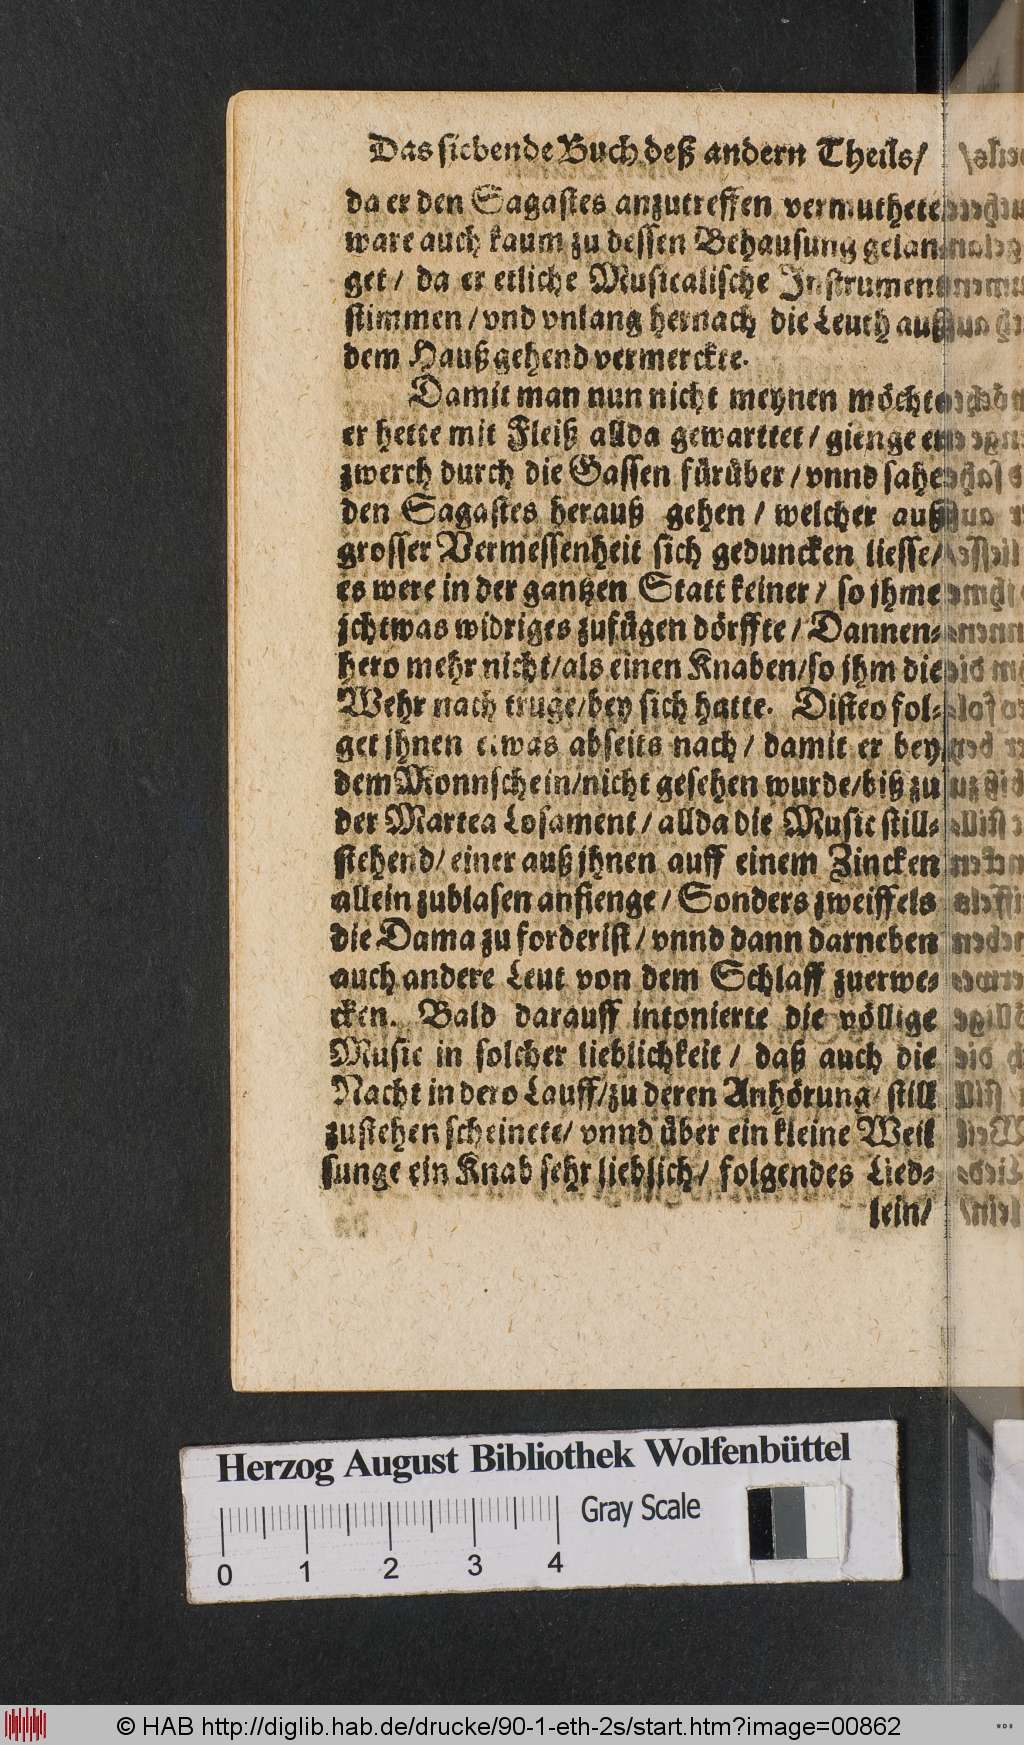 Das siebende Buch deß andern Theils/
da er den Sagastes anzutreffen vermuthete
ware auch kaum zu dessen Behausung gelan
get/ da er etliche Musicalische Instrumen
stimmen/ vnd vnlang hernach die Leuth auß
dem Hauß gehend vermerckte.
Damit man nun nicht meynen möchte
er hette mit Fleiß allda gewarttet/ gienge er
zwerch durch die Gassen fürüber/ vnnd sahe
den Sagastes herauß gehen/ welcher auß
grosser Vermessenheit sich geduncken liesse/
es were in der gantzen Statt keiner/ so ihme
jchtwas widriges zufügen dörffte/ Dannen-
hero mehr nicht/ als einen Knaben/ so ihm die
Wehr nach truge/ bey sich hatte. Disteo fol-
get jhnen etwas abseits nach/ damit er bey
dem Monnschein/ nicht gesehen wurde/ biß zu
der Martea Losament/ allda die Music still-
stehend/ einer auß jhnen auff einem Zincken
allein zublasen anfienge/ Sonders zweiffels
die Dama zu forderist/ vnnd dann darneben
auch andere Leut von dem Schlaff zuerwe-
cken. Bald darauff intonierte die völlige
Music in solcher lieblichkeit/ daß auch die
Nacht in dero Lauff/ zu deren Anhörung/ still
zustehen scheinete/ vnnd über ein kleine Weil
sunge ein Knab sehr lieblich/ folgendes Lied-
lein/
Herzog August Bibliothek Wolfenbüttel
Gray Scale
0 1 2 3 4
© HAB http://diglib.hab.de/drucke/90-1-eth-2s/start.htm?image=00862